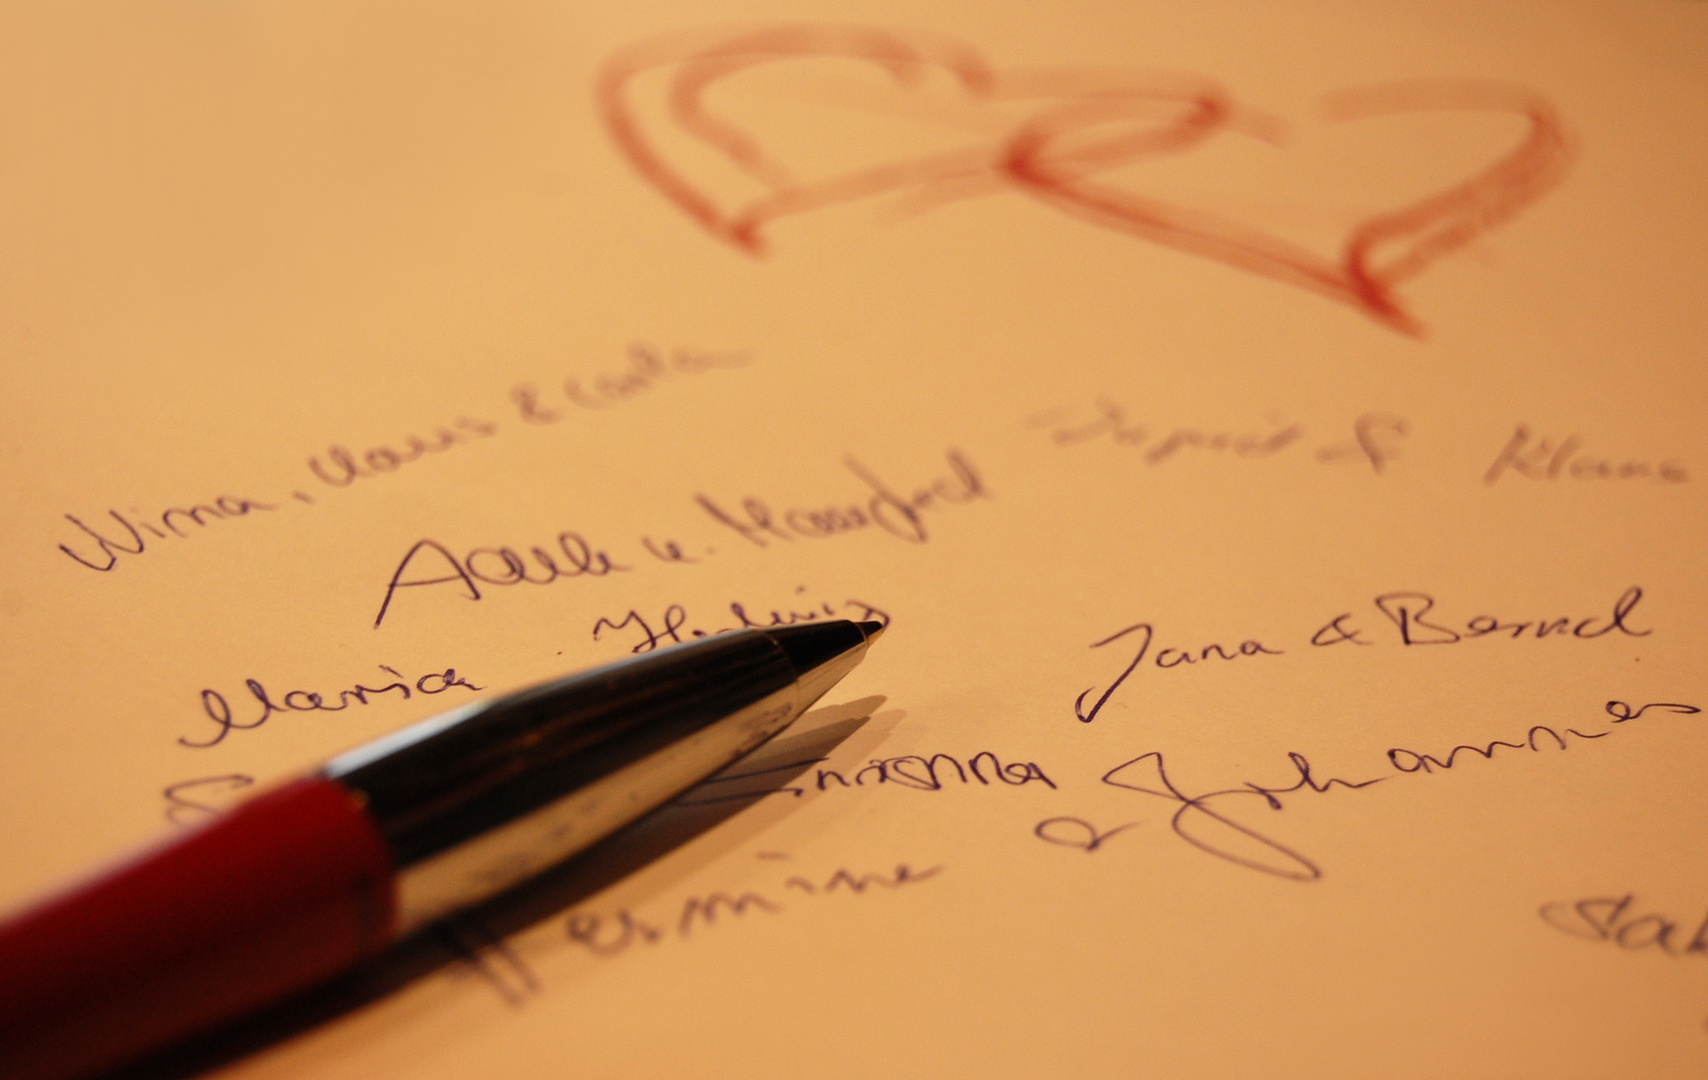 Wirna, Klaus & Carla
Ingrid & Klaus
Adele u. Manfred
Maria Hedwig
Jana & Bernd
Johannes
Hermine